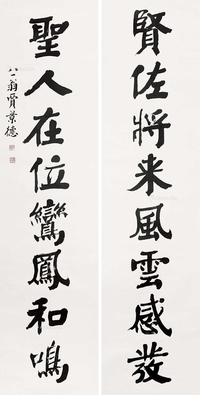 賢佐將来風雲感發
聖人在位鸞鳳和鳴
八一翁賈景德